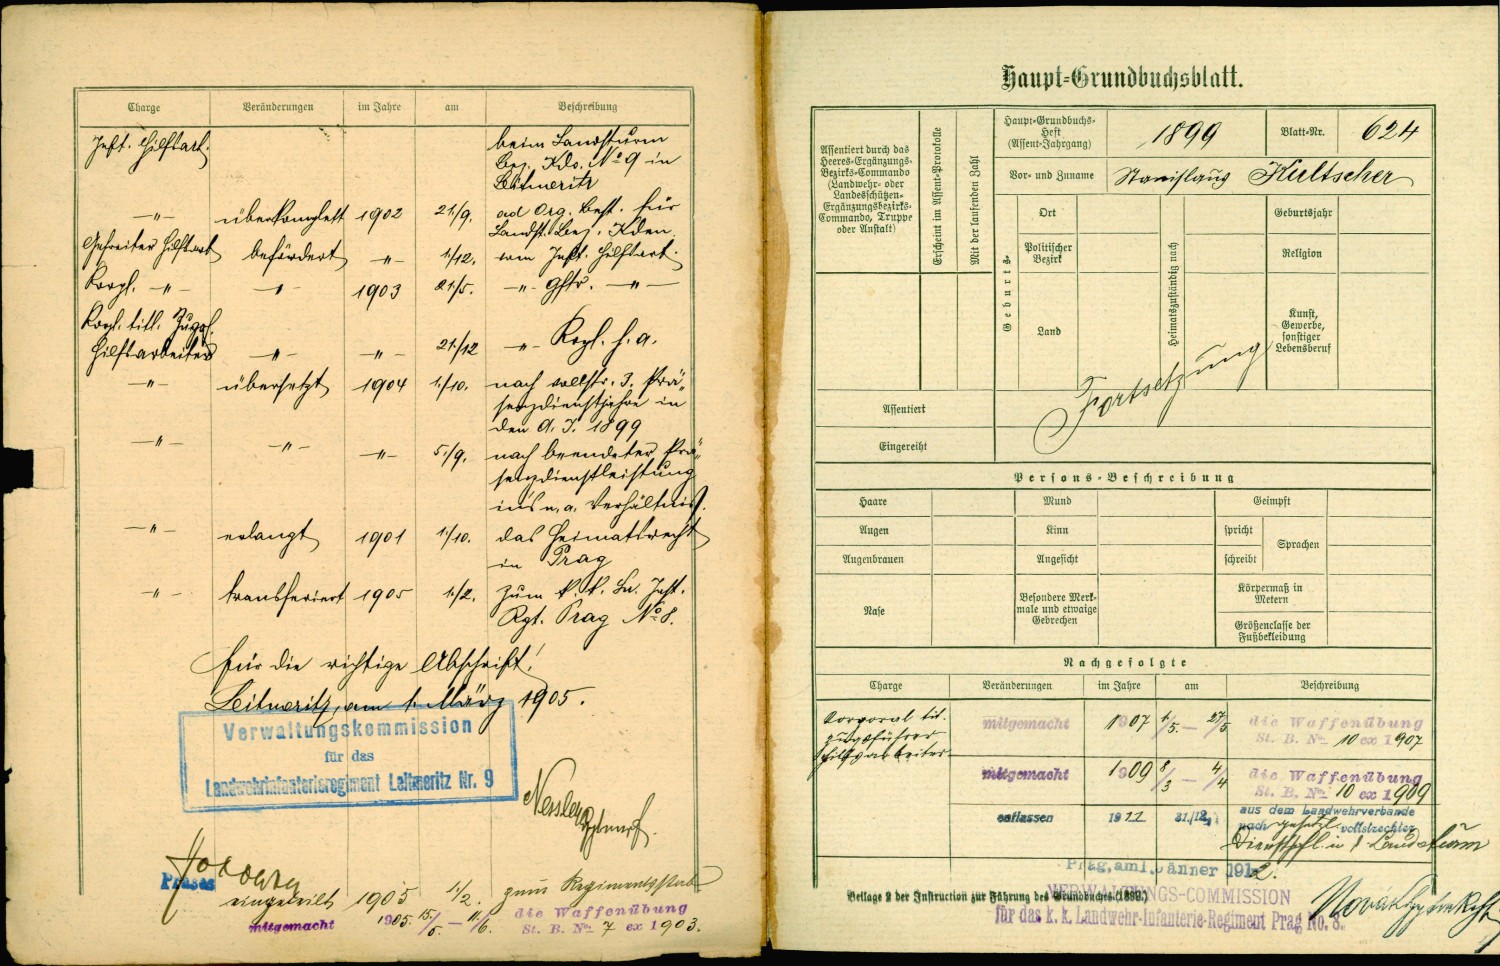 Charge Veränderungen im Jahre am Beschreibung
Inft. Hilfsarb. beim Landsturm
Bez. Kdo. No 9 in
Leitmeritz
—"— überkomplett 1902 21/9. ad Org. Best. für
Landst. Bez. Kden.
Gefreiter Hilfsarb. befördert —"— 1/12. vom Inft. Hilfsarb.
Korpl. —"— —"— 1903 21/5. —"— Gftr. —"—
Korpl. titl. Zugsf.
Hilfsarbeiter —"— —"— 21/12 —"— Korpl. H. a.
—"— übersetzt 1904 1./10. nach vollstr. 3. Prä„
senzdienstjahre in
den A. J. 1899
—"— —"— —"— 5./9. nach beendeter Prä„
senzdienstleistung
ins n. a. Verhältnis.
—"— erlangt 1901 1./10. das Heimatsrecht
in Prag
—"— transferiert 1905 1./2. zum k. k. Lw. Inft.
Rgt. Prag No 8.
für die richtige Abschrift!
Leitmeritz, am 1. März 1905.
Verwaltungskommission
für das
Landwehrinfanterieregiment Leitmeritz Nr. 9
Präses
eingeteilt 1905 1./2. zum Regimentsstab
mitgemacht 1905. 15./5. — 11./6. die Waffenübung
St. B. No 7 ex 1903.
Haupt-Grundbuchsblatt.
Assentiert durch das
Heeres-Ergänzungs-
Bezirks-Commando
(Landwehr- oder
Landesschützen-
Ergänzungsbezirks-
Commando, Truppe
oder Anstalt)
Erscheint im Assent-Protokolle
Mit der laufenden Zahl
Haupt-Grundbuchs-
Heft
(Assent-Jahrgang) 1899 Blatt-Nr. 624
Vor- und Zuname Stanislaus Kultscher
Geburts-
Ort
Politischer
Bezirk
Land
Heimatszuständig nach
Geburtsjahr
Religion
Kunst,
Gewerbe,
sonstiger
Lebensberuf
Fortsetzung
Assentiert
Eingereiht
Persons-Beschreibung
Haare Mund Geimpft
Augen Kinn spricht Sprachen
Augenbrauen Angesicht schreibt
Nase Besondere Merk-
male und etwaige
Gebrechen
Körpermaß in
Metern
Größenclasse der
Fußbekleidung
Nachgefolgte
Charge Veränderungen im Jahre am Beschreibung
Korporal tit.
Zugsführer
Hilfsarbeiter
mitgemacht 1907 1/5. — 27/5 die Waffenübung
St. B. No 10 ex 1907
mitgemacht 1909 8/3 — 4/4 die Waffenübung
St. B. No 10 ex 1909
entlassen 1911 31./12. aus dem Landwehrverbande
nach gesetzl. vollstreckter
Dienstpfl. in d. Landsturm
Prag, am 1. Jänner 1912.
Beilage 2 der Instruction zur Führung des Grundbuchs (1899.)
VERWALTUNGS-COMMISSION
für das k. k. Landwehr-Infanterie-Regiment Prag No. 8.